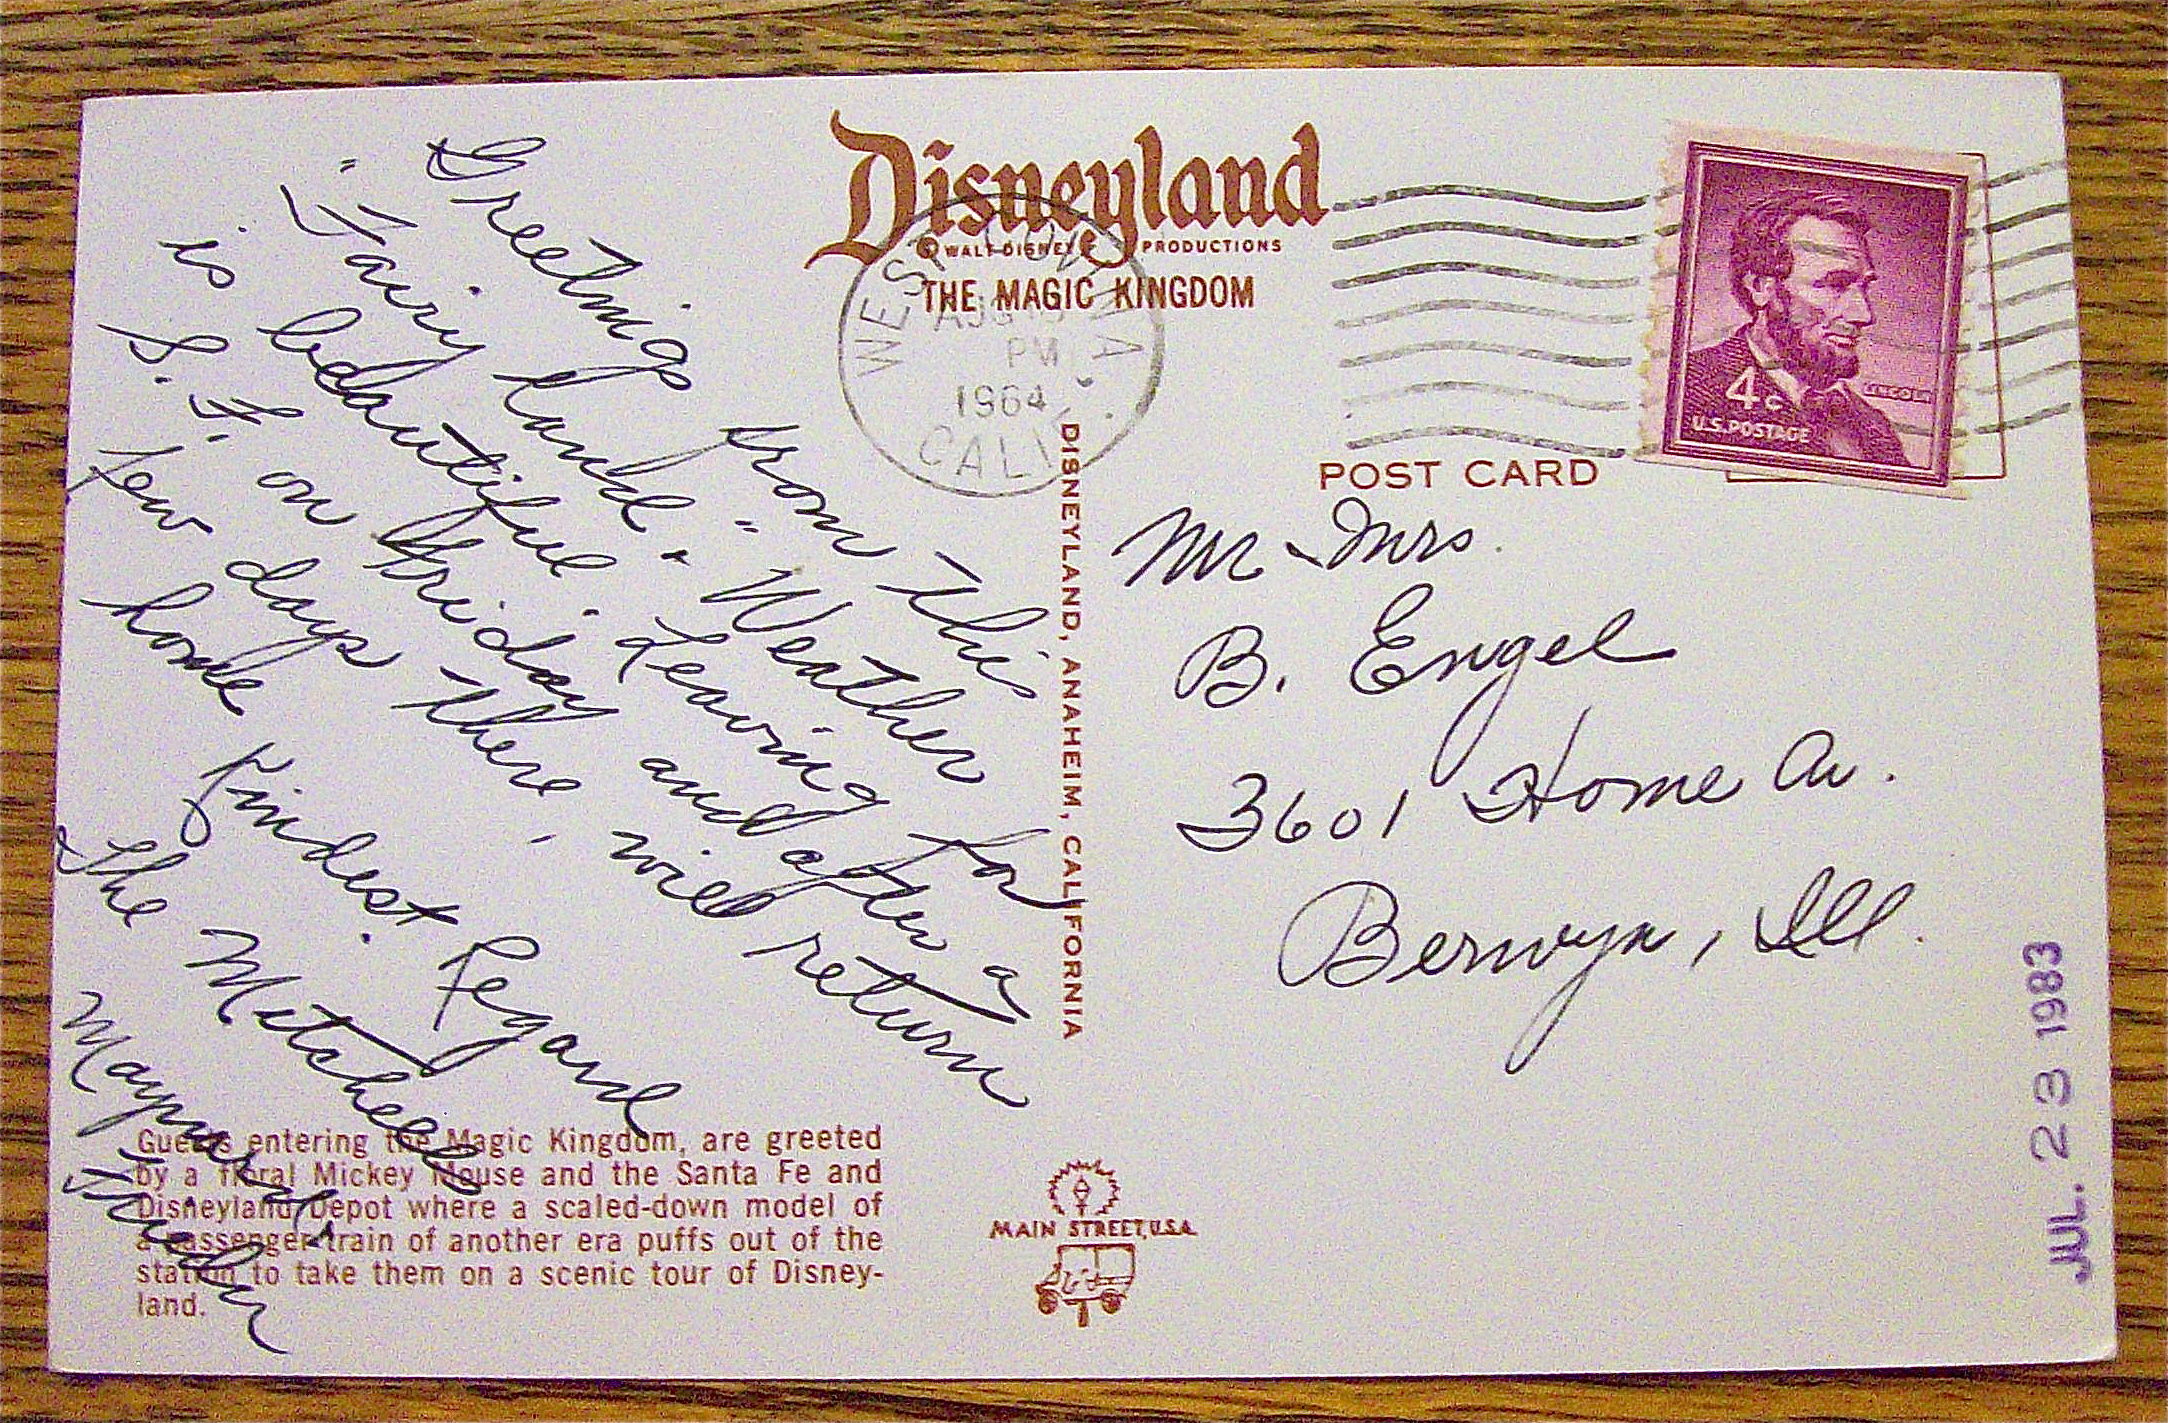 Disneyland
© WALT DISNEY PRODUCTIONS
THE MAGIC KINGDOM
WEST COVINA,
AUG
PM
1964
CALIF.
LINCOLN
4c
U.S. POSTAGE
POST CARD
Greetings from this
"Fairy land." Weather
is beautiful. Leaving for
S. F. on Friday and after a
few days there, will return
home
Kindest Regard
The Mitchells
DISNEYLAND, ANAHEIM, CALIFORNIA
Mr - Mrs.
B. Engel
3601 Home Av.
Berwyn, Ill.
JUL. 23 1983
Guests entering the Magic Kingdom, are greeted
by a floral Mickey Mouse and the Santa Fe and
Disneyland Depot where a scaled-down model of
a passenger train of another era puffs out of the
station to take them on a scenic tour of Disney-
land.
MAIN STREET, U.S.A.